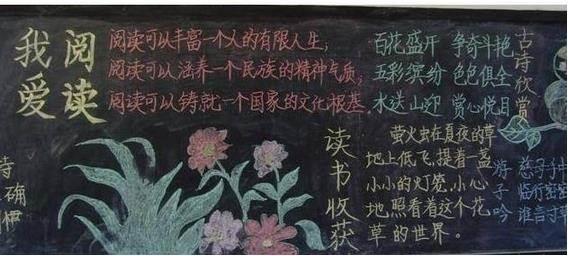 我爱
阅读
阅读可以丰富一个人的有限人生;
阅读可以涵养一个民族的精神气质;
阅读可以铸就一个国家的文化根基.
百花盛开 争奇斗艳
五彩缤纷 色色俱全
水送山迎 赏心悦目
古诗欣赏
读书收获
萤火虫在夏夜的草
地上低飞,提着一盏
小小的灯笼,小心
地照看着这个花
草的世界。
游子吟
慈母手中
临行密密
谁言寸草
诗
确
惯